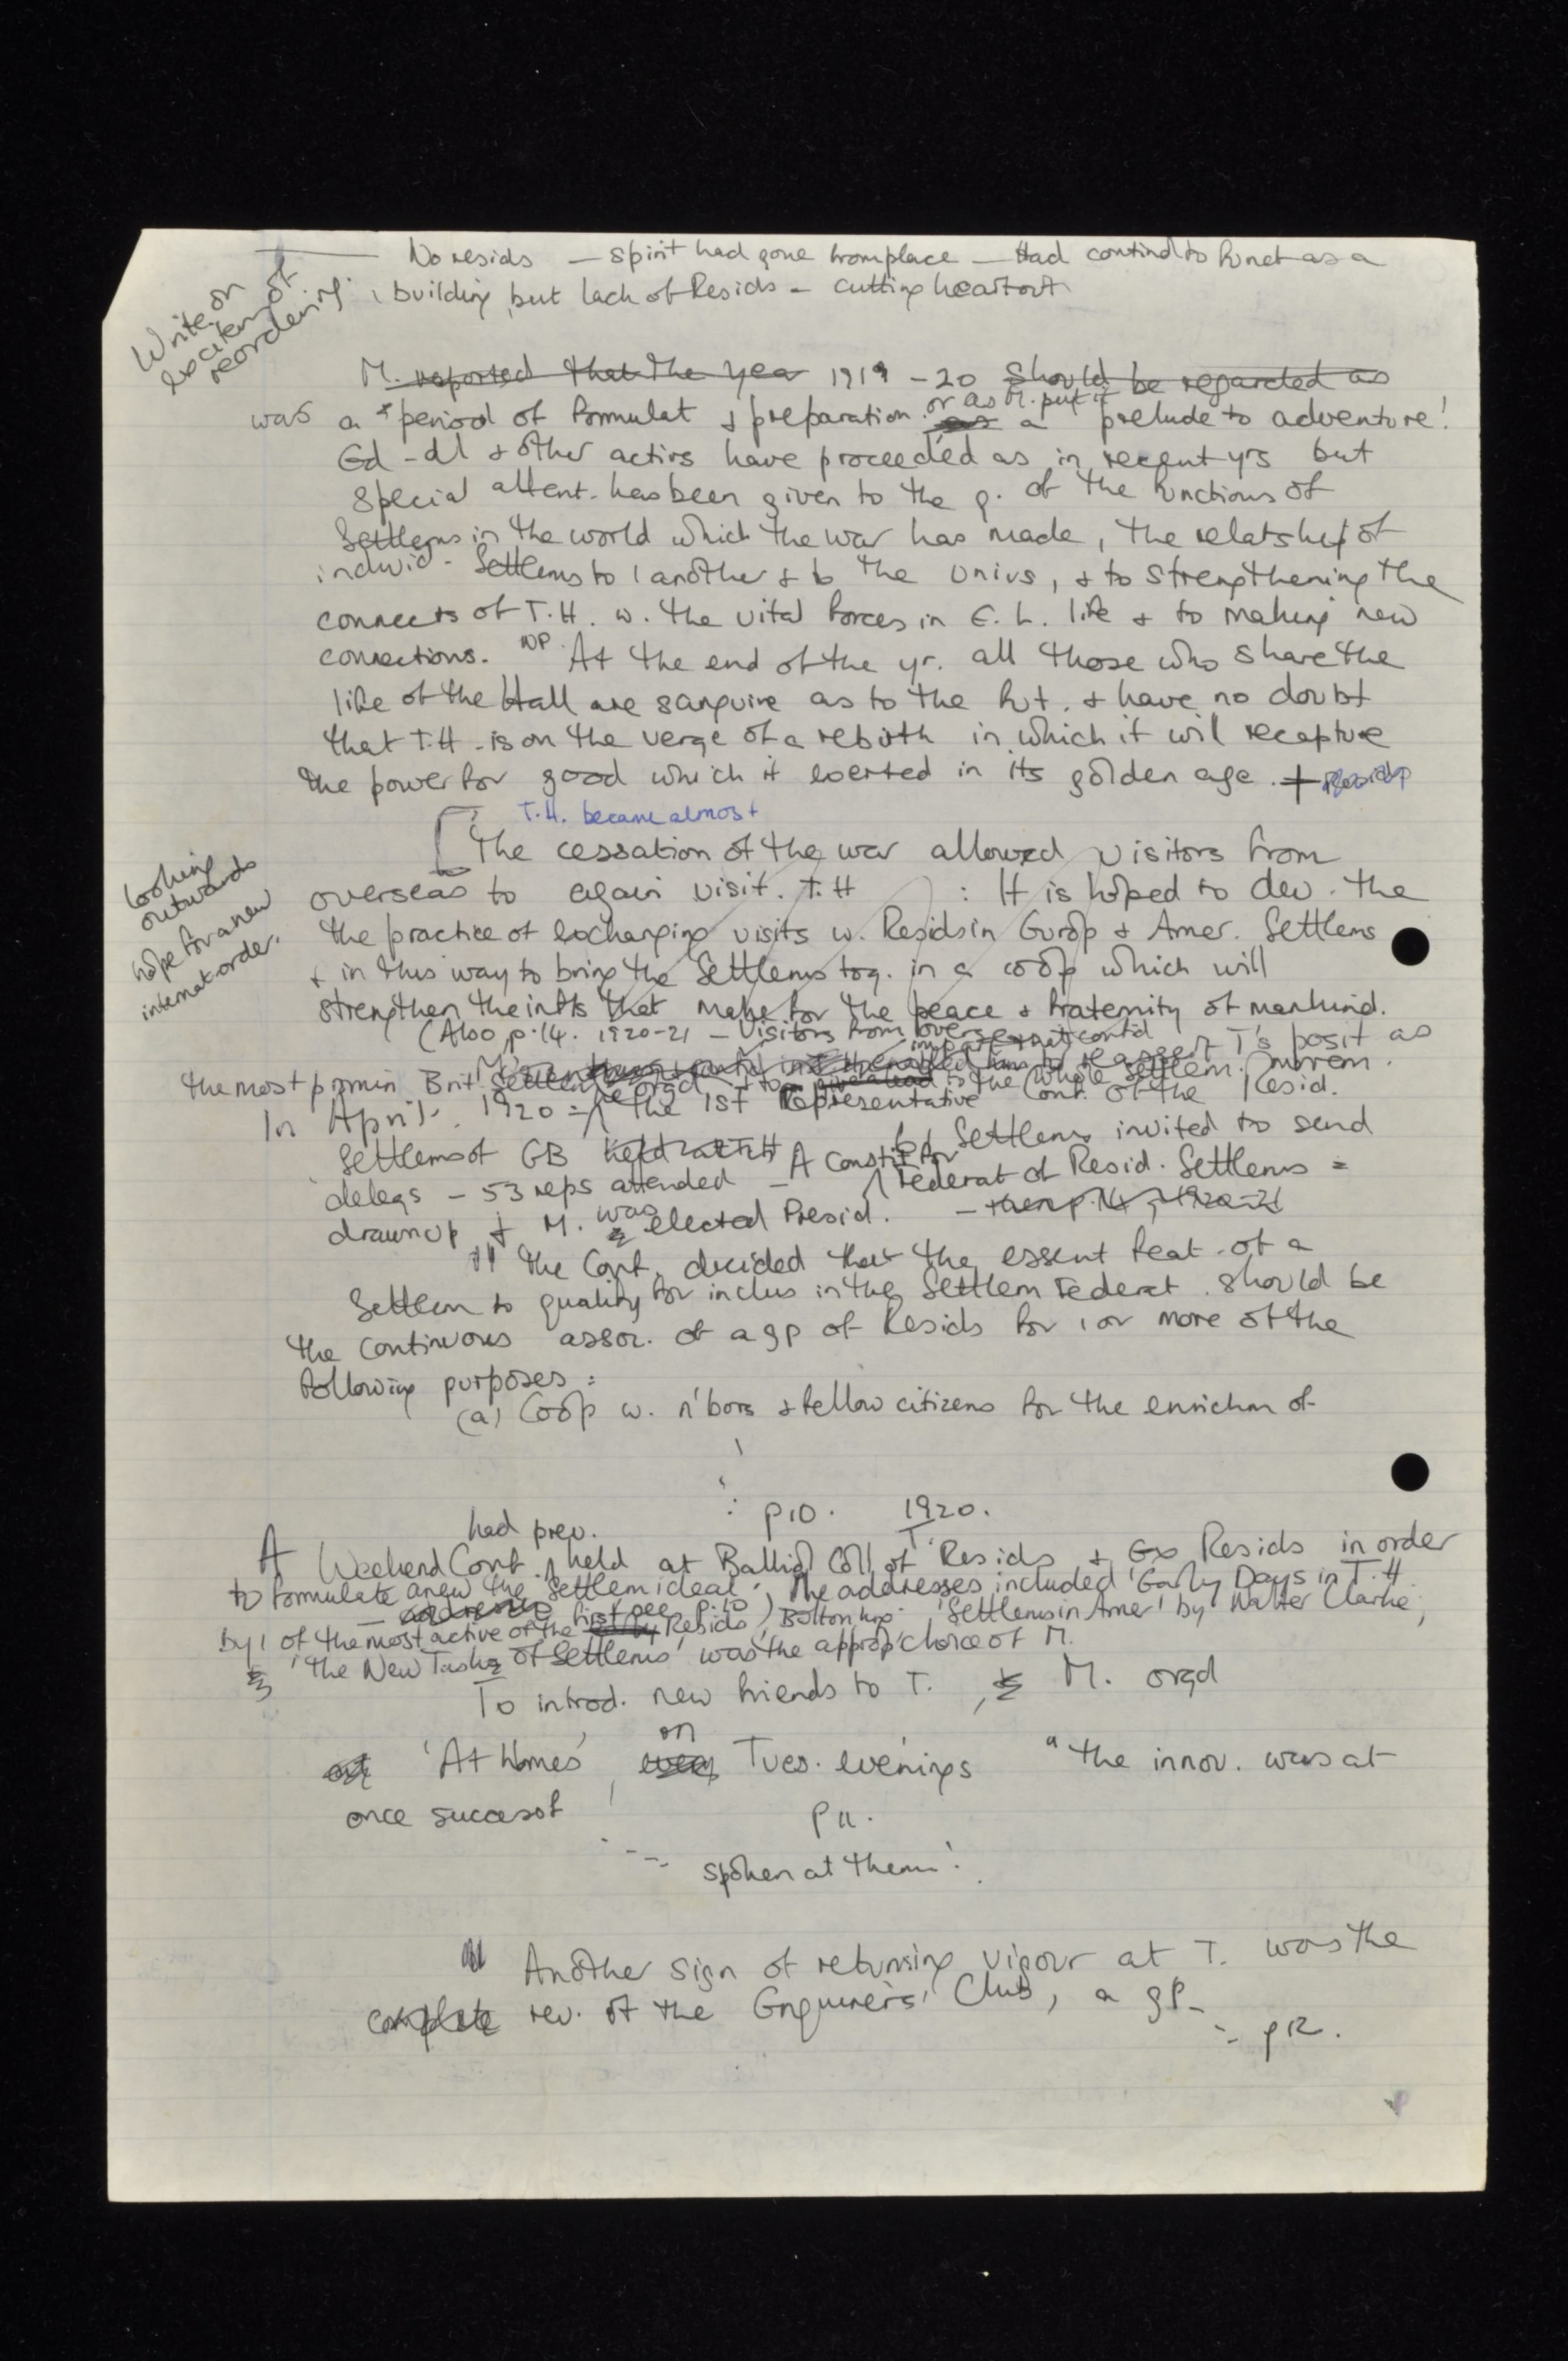 No resids — spirit had gone from place — Had contind to funct as a
building, but lack of Resids — cutting heart out
Write on
excitem of
reordering.
M. reported that the year 1919 - 20 should be regarded as
was a 'period of formulat & preparation or as M. put it a prelude to adventure'
Ed-al & other activs have proceeded as in recent yrs but
special attent. has been given to the q. of the functions of
Settlems in the world which the war has made, the relatship of
individ - Settlems to 1 another & to the Univs, & to strengthening the
connects of T.H. w. the vital forces in E. L. life & to making new
connections. NP At the end of the yr. all those who share the
life of the Hall are sanguine as to the fut. & have no doubt
that T.H. is on the verge of a rebirth in which it will recapture
the power for good which it exerted in its golden age. +
T.H. became almost
The cessation of the war allowed visitors from
overseas to again visit. T.H : It is hoped to dev. the
the practice of exchanging visits w. Resids in Europ & Amer. Settlems
& in this way to bring the Settlems tog. in a coop which will
strengthen the infls that make for the peace & fraternity of mankind.
looking
outwards
hope for a new
internat order.
(Also p.14. 1920-21 — Visitors from overseas contd
M's enabled him to reassert T's posit as
the most promin Brit Settlem & to give a lead to the whole Settlem. Movem.
In April. 1920 = he orgd the 1st Representative Conf. of the Resid.
Settlems of GB held at T.H Settlems invited to send
delegs — 53 reps attended — A Constit for Federat of Resid. Settlems =
drawn up & M. was elected Presid. — then p.14, 1920-21
The Conf. decided that the essent feat. of a
Settlem to qualify for inclus in the Settlem Federat. should be
the continuous assoc. of a gp of Resids for 1 or more of the
following purposes =
(a) Coop w. n'bors & fellow citizens for the enrichm of
p10. 1920.
had prev.
A Weekend Conf. held at Balliol Coll of T. Resids & Ex Resids in order
to formulate anew the Settlem ideal. The addresses included 'Early Days in T.H
— addresses (see p.10)
by 1 of the most active of the first Resids, Bolton King. 'Settlems in Amer' by Walter Clarke,
& 'The New Tasks of Settlems' was the approp choice of M.
To introd. new friends to T., M. orgd
'At Homes', on Tues. evenings "the innov. was at
once succesf
p 11.
spoken at them'.
Another sign of returning vigour at T. was the
complete rev. of the Enquirers' Club, a gp -
p12.